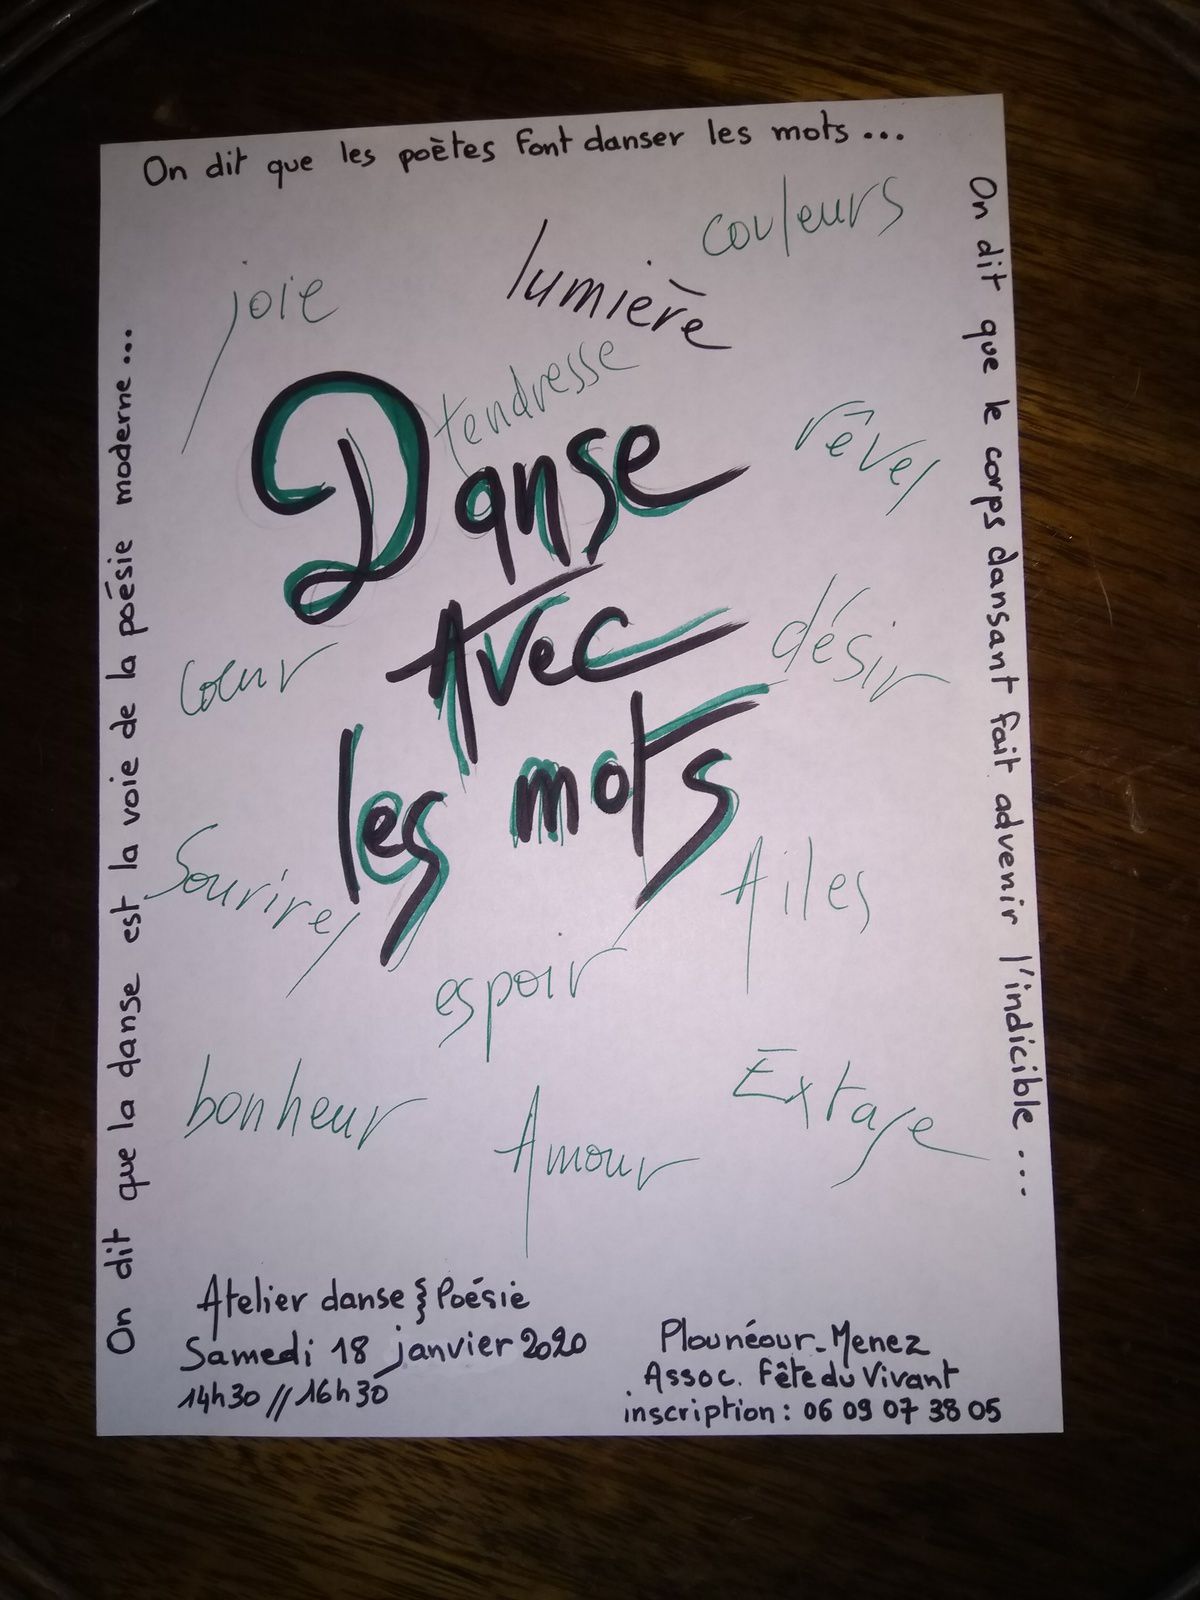 On dit que les poètes font danser les mots...
On dit que le corps dansant fait advenir l'indicible...
On dit que la danse est la voie de la poésie moderne...
couleurs
lumière
joie
tendresse
Danse
rêves
Avec
désir
cœur
les mots
Sourires
Ailes
espoir
bonheur
Extase
Amour
Atelier danse & Poésie
Samedi 18 janvier 2020
14h30 // 16h30
Plounéour-Menez
Assoc. Fête du Vivant
inscription : 06 09 07 38 05